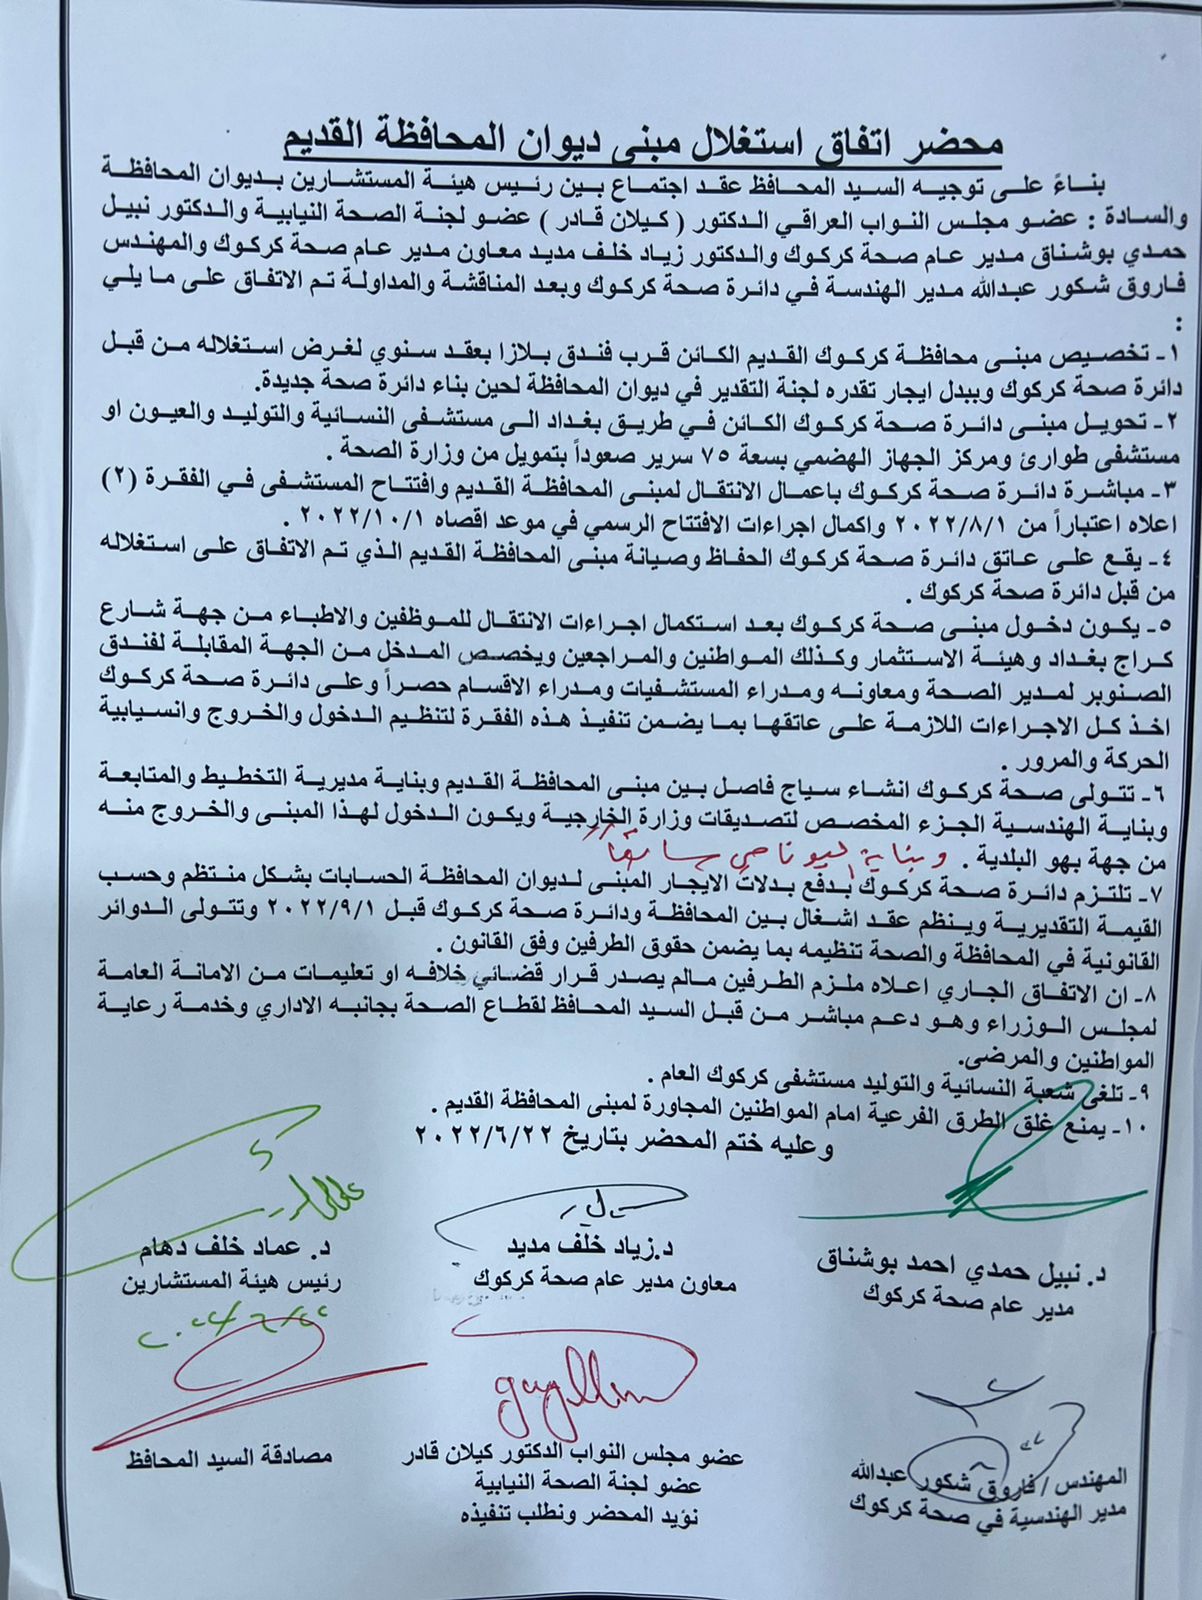 محضر اتفاق استغلال مبنى ديوان المحافظة القديم
بناءً على توجيه السيد المحافظ عقد اجتماع بين رئيس هيئة المستشارين بديوان المحافظة
والسادة : عضو مجلس النواب العراقي الدكتور ( كيلان قادر ) عضو لجنة الصحة النيابية والدكتور نبيل
حمدي بوشناق مدير عام صحة كركوك والدكتور زياد خلف مديد معاون مدير عام صحة كركوك والمهندس
فاروق شكور عبدالله مدير الهندسة في دائرة صحة كركوك وبعد المناقشة والمداولة تم الاتفاق على ما يلي
:
١- تخصيص مبنى محافظة كركوك القديم الكائن قرب فندق بلازا بعقد سنوي لغرض استغلاله من قبل
دائرة صحة كركوك وببدل ايجار تقدره لجنة التقدير في ديوان المحافظة لحين بناء دائرة صحة جديدة.
٢- تحويل مبنى دائرة صحة كركوك الكائن في طريق بغداد الى مستشفى النسائية والتوليد والعيون او
مستشفى طوارئ ومركز الجهاز الهضمي بسعة ٧٥ سرير صعوداً بتمويل من وزارة الصحة .
٣- مباشرة دائرة صحة كركوك باعمال الانتقال لمبنى المحافظة القديم وافتتاح المستشفى في الفقرة (٢)
اعلاه اعتباراً من ٢٠٢٢/٨/١ واكمال اجراءات الافتتاح الرسمي في موعد اقصاه ٢٠٢٢/١٠/١ .
٤- يقع على عاتق دائرة صحة كركوك الحفاظ وصيانة مبنى المحافظة القديم الذي تم الاتفاق على استغلاله
من قبل دائرة صحة كركوك .
٥- يكون دخول مبنى صحة كركوك بعد استكمال اجراءات الانتقال للموظفين والاطباء من جهة شارع
كراج بغداد وهيئة الاستثمار وكذلك المواطنين والمراجعين ويخصص المدخل من الجهة المقابلة لفندق
الصنوبر لمدير الصحة ومعاونه ومدراء المستشفيات ومدراء الاقسام حصراً وعلى دائرة صحة كركوك
اخذ كل الاجراءات اللازمة على عاتقها بما يضمن تنفيذ هذه الفقرة لتنظيم الدخول والخروج وانسيابية
الحركة والمرور .
٦- تتولى صحة كركوك انشاء سياج فاصل بين مبنى المحافظة القديم وبناية مديرية التخطيط والمتابعة
وبناية الهندسية الجزء المخصص لتصديقات وزارة الخارجية ويكون الدخول لهذا المبنى والخروج منه
من جهة بهو البلدية . وبناية اليوناحي سابقاً
٧- تلتزم دائرة صحة كركوك بدفع بدلات الايجار المبنى لديوان المحافظة الحسابات بشكل منتظم وحسب
القيمة التقديرية وينظم عقد اشغال بين المحافظة ودائرة صحة كركوك قبل ٢٠٢٢/٩/١ وتتولى الدوائر
القانونية في المحافظة والصحة تنظيمه بما يضمن حقوق الطرفين وفق القانون .
٨- ان الاتفاق الجاري اعلاه ملزم الطرفين مالم يصدر قرار قضائي خلافه او تعليمات من الامانة العامة
لمجلس الوزراء وهو دعم مباشر من قبل السيد المحافظ لقطاع الصحة بجانبه الاداري وخدمة رعاية
المواطنين والمرضى.
٩- تلغى شعبة النسائية والتوليد مستشفى كركوك العام .
١٠- يمنع غلق الطرق الفرعية امام المواطنين المجاورة لمبنى المحافظة القديم .
وعليه ختم المحضر بتاريخ ٢٠٢٢/٦/٢٢
د. نبيل حمدي احمد بوشناق
مدير عام صحة كركوك
د.زياد خلف مديد
معاون مدير عام صحة كركوك
د. عماد خلف دهام
رئيس هيئة المستشارين
المهندس / فاروق شكور عبدالله
مدير الهندسية في صحة كركوك
عضو مجلس النواب الدكتور كيلان قادر
عضو لجنة الصحة النيابية
نؤيد المحضر ونطلب تنفيذه
مصادقة السيد المحافظ